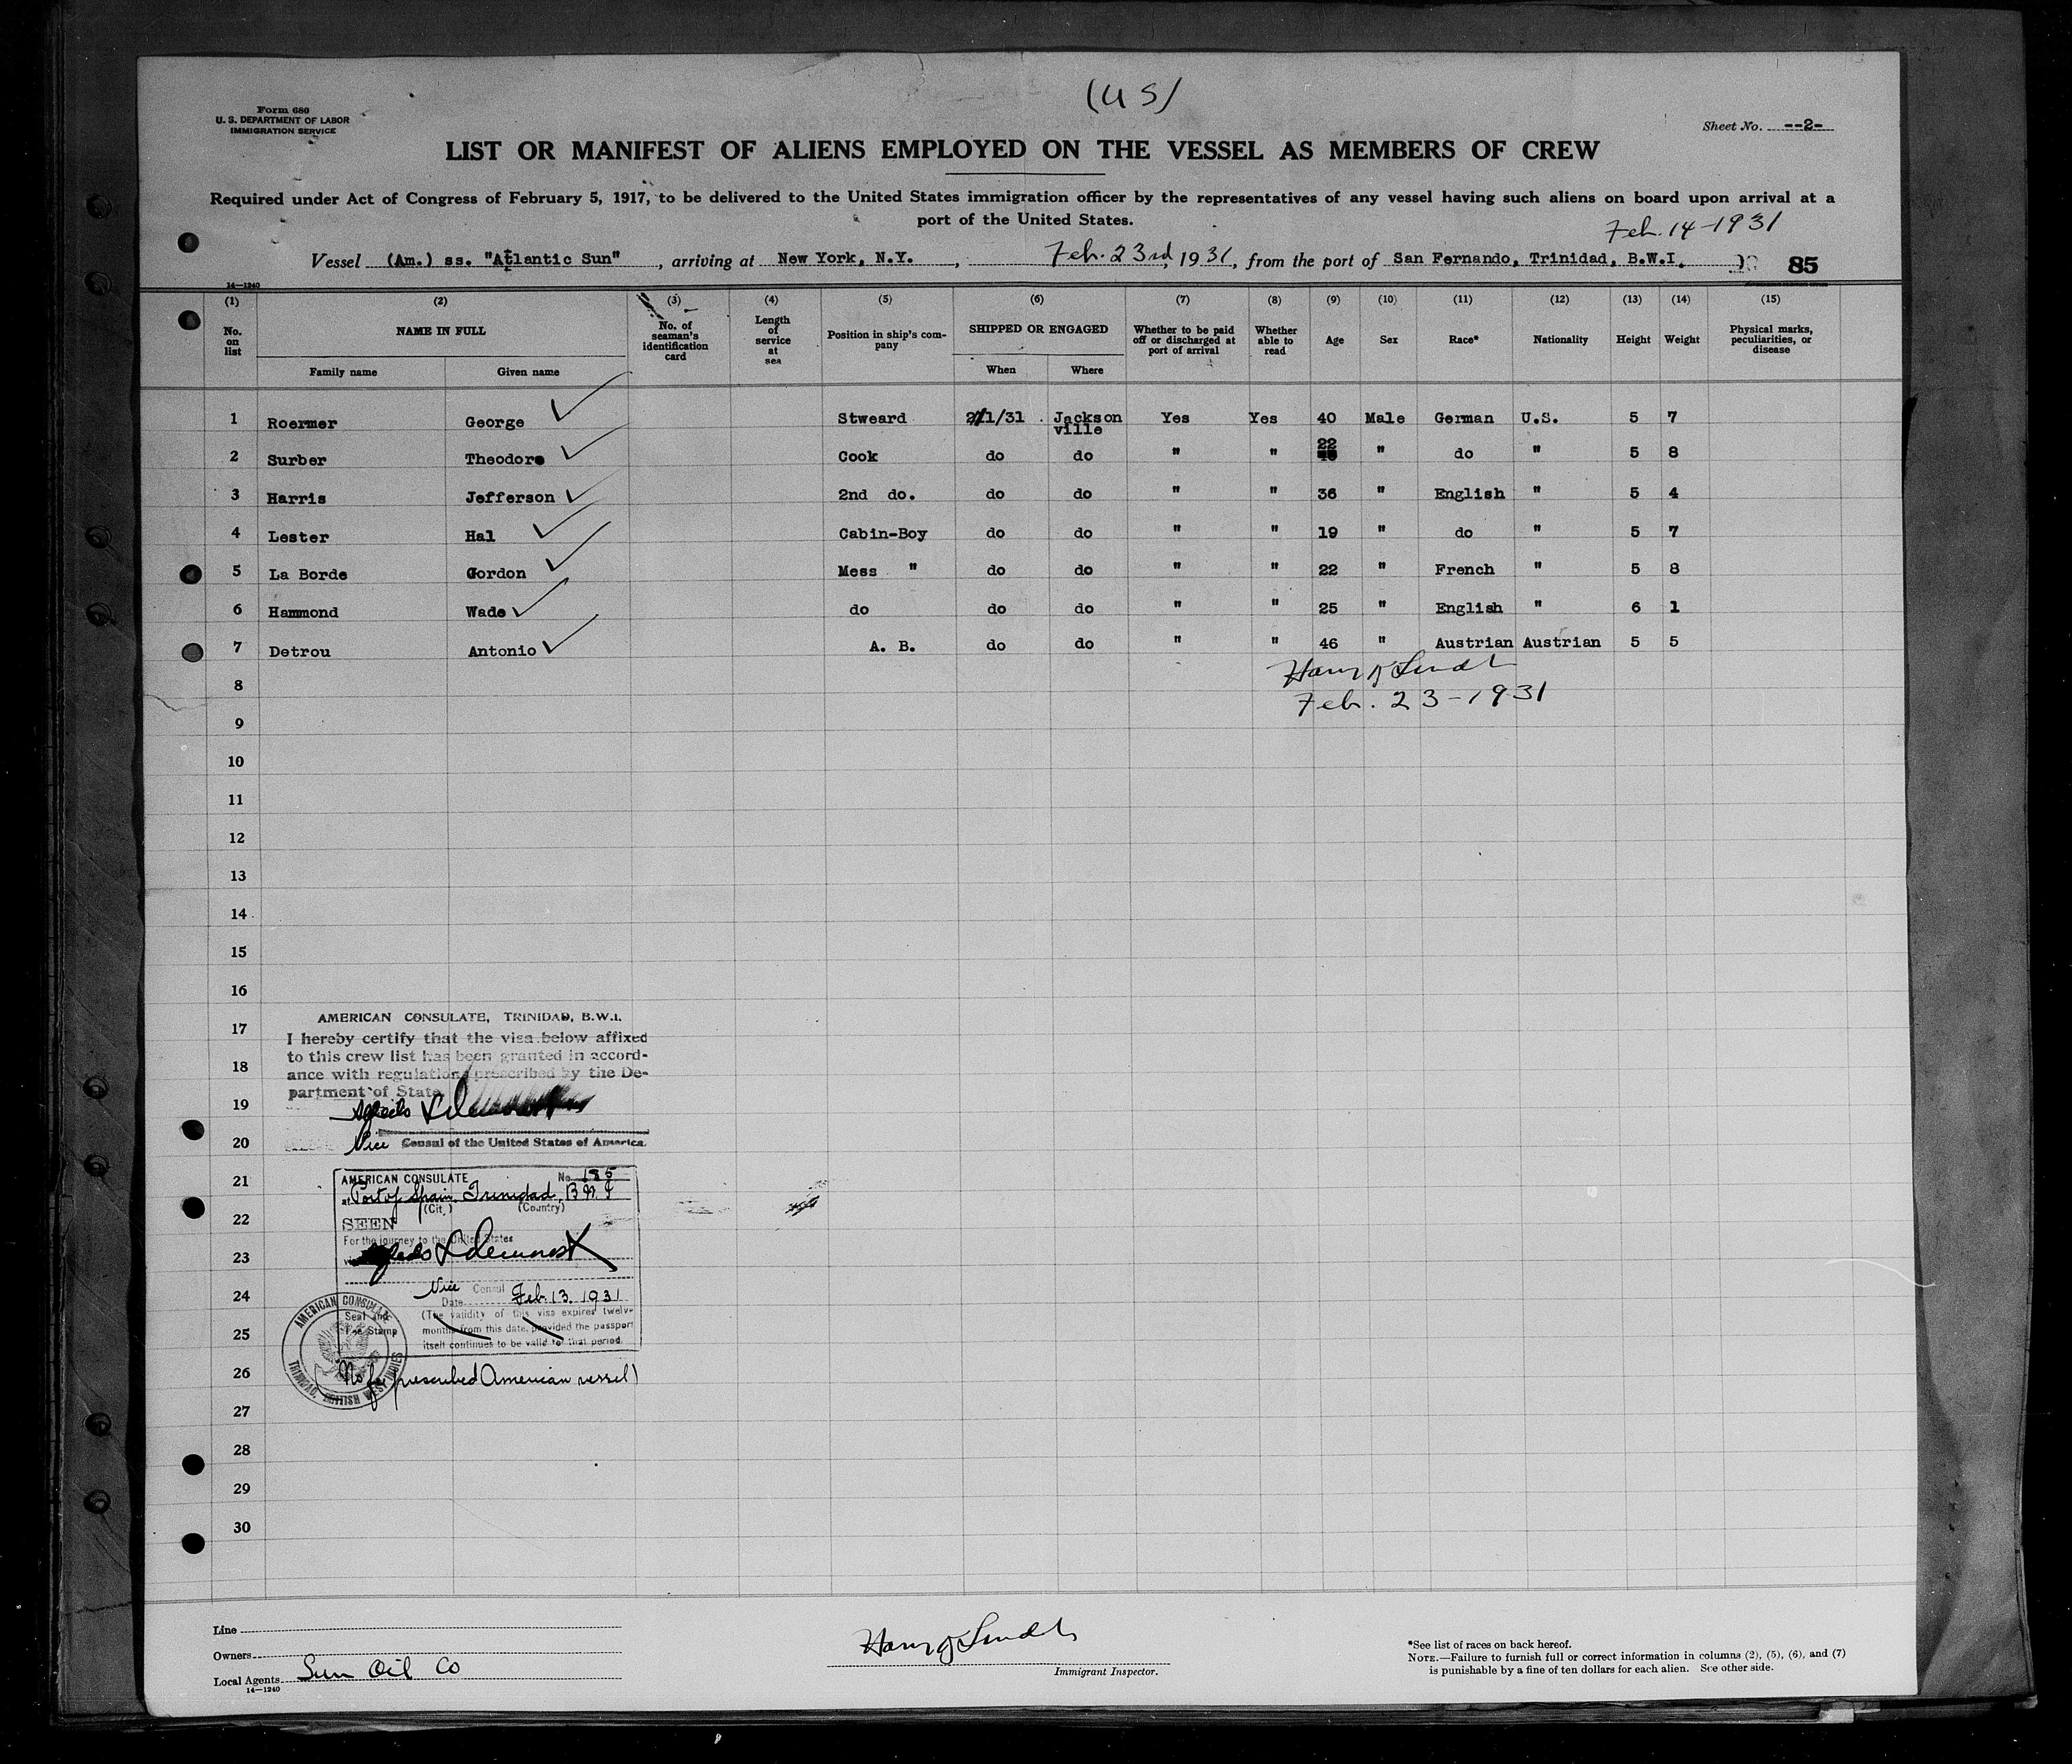 (US)
Form 680
U. S. DEPARTMENT OF LABOR
IMMIGRATION SERVICE
Sheet No. --2-
LIST OR MANIFEST OF ALIENS EMPLOYED ON THE VESSEL AS MEMBERS OF CREW
Required under Act of Congress of February 5, 1917, to be delivered to the United States immigration officer by the representatives of any vessel having such aliens on board upon arrival at a
port of the United States.
Feb. 14-1931
Vessel (Am.) ss. "Atlantic Sun", arriving at New York, N.Y., Feb. 23rd, 1931, from the port of San Fernando, Trinidad, B.W.I. 85
14—1240
(1) (2) (3) (4) (5) (6) (7) (8) (9) (10) (11) (12) (13) (14) (15)
No. on list NAME IN FULL No. of seaman's identification card Length of service at sea Position in ship's company SHIPPED OR ENGAGED Whether to be paid off or discharged at port of arrival Whether able to read Age Sex Race* Nationality Height Weight Physical marks, peculiarities, or disease
Family name Given name When Where
1 Roermer George Stweard 2/1/31 Jackson ville Yes Yes 40 Male German U.S. 5 7
2 Surber Theodore Cook do do " " 22 " do " 5 8
3 Harris Jefferson 2nd do. do do " " 36 " English " 5 4
4 Lester Hal Cabin-Boy do do " " 19 " do " 5 7
5 La Borde Gordon Mess " do do " " 22 " French " 5 8
6 Hammond Wade do do do " " 25 " English " 6 1
7 Detrou Antonio A. B. do do " " 46 " Austrian Austrian 5 5
8
Feb. 23-1931
9
10
11
12
13
14
15
16
AMERICAN CONSULATE, TRINIDAD, B.W.I.
17
I hereby certify that the visa below affixed
to this crew list has been granted in accord-
18
ance with regulations prescribed by the De-
partment of State
19
20
Vice Consul of the United States of America.
21
AMERICAN CONSULATE No. 185
at Port of Spain, Trinidad, B W I
(City) (Country)
22
SEEN
For the journey to the United States
23
24
Vice Consul
Date Feb. 13. 1931
(The validity of this visa expires twelve
25
months from this date, provided the passport
itself continues to be valid for that period.
Seal and
Fee Stamp
AMERICAN CONSULATE
TRINIDAD, BRITISH WEST INDIES
26
No fee prescribed American vessel)
27
28
29
30
Line
Owners
Local Agents Sun Oil Co
14—1240
Immigrant Inspector.
*See list of races on back hereof.
NOTE.—Failure to furnish full or correct information in columns (2), (5), (6), and (7)
is punishable by a fine of ten dollars for each alien. See other side.